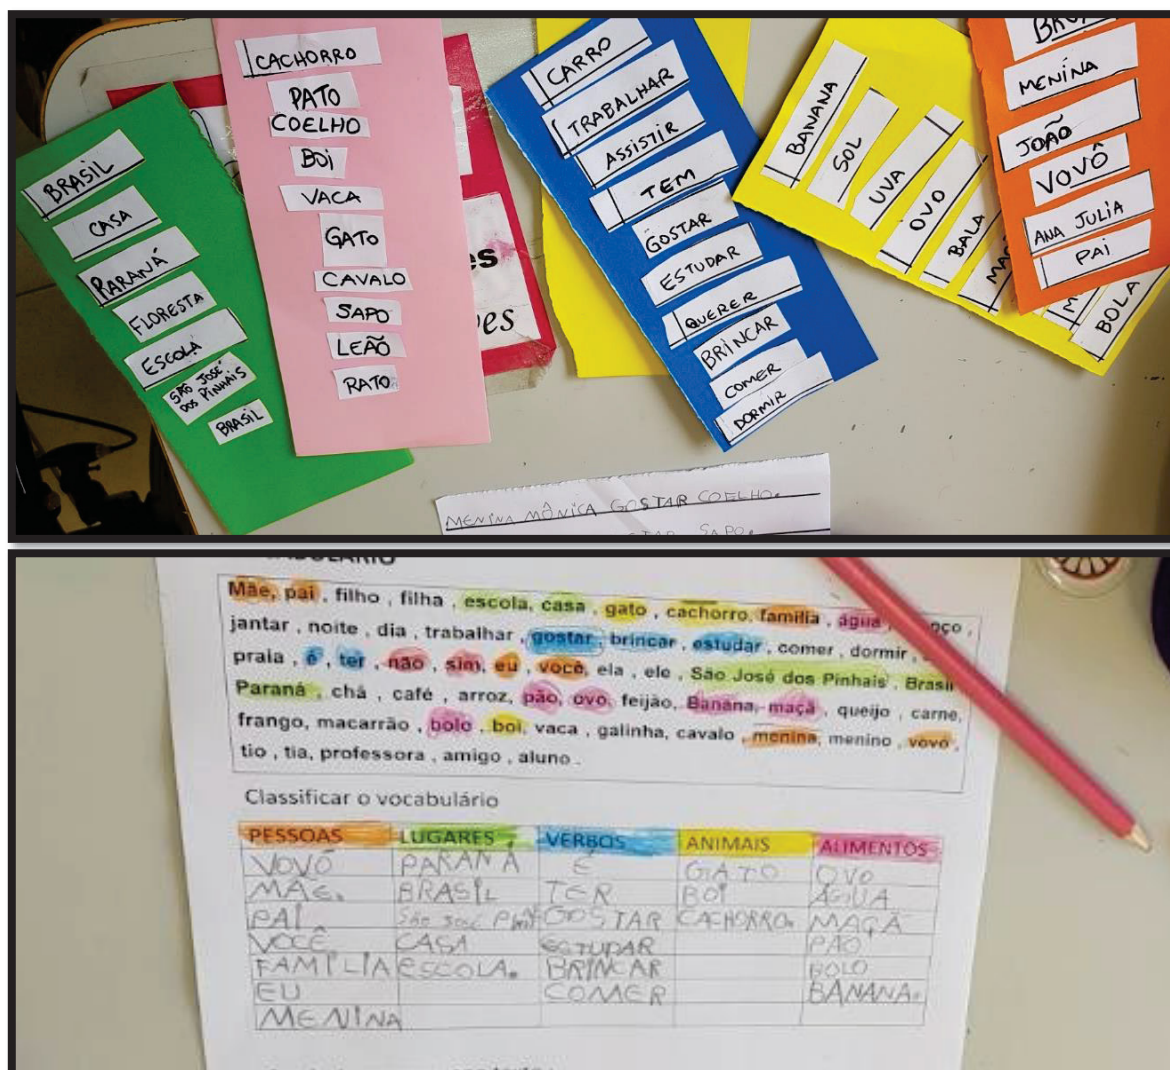 BRASIL
CASA
PARANÁ
FLORESTA
ESCOLA
SÃO JOSÉ
DOS PINHAIS
BRASIL
CACHORRO
PATO
COELHO
BOI
VACA
GATO
CAVALO
SAPO
LEÃO
RATO
CARRO
TRABALHAR
ASSISTIR
TEM
GOSTAR
ESTUDAR
QUERER
BRINCAR
COMER
DORMIR
BANANA
SOL
UVA
OVO
BALA
BOLA
MENINA
JOÃO
VOVÔ
ANA JULIA
PAI
MENINA MÔNICA GOSTAR COELHO.
SAPO.
Mãe, pai , filho , filha , escola, casa , gato , cachorro, família , água ,
jantar , noite , dia , trabalhar , gostar, brincar , estudar , comer , dormir ,
praia , é , ter , não , sim, eu , você, ela , ele , São José dos Pinhais , Brasil
Paraná , chá , café , arroz, pão, ovo, feijão, Banana, maçã , queijo , carne,
frango, macarrão , bolo , boi, vaca , galinha, cavalo , menina, menino , vovó ,
tio , tia, professora , amigo , aluno .
Classificar o vocabulário
PESSOAS LUGARES VERBOS ANIMAIS ALIMENTOS
VOVÓ PARANÁ É GATO OVO
MÃE. BRASIL TER BOI ÁGUA
PAI São José GOSTAR CACHORRO. MAÇÃ
VOCÊ CASA ESTUDAR PÃO
FAMÍLIA ESCOLA. BRINCAR BOLO
EU COMER BANANA.
MENINA